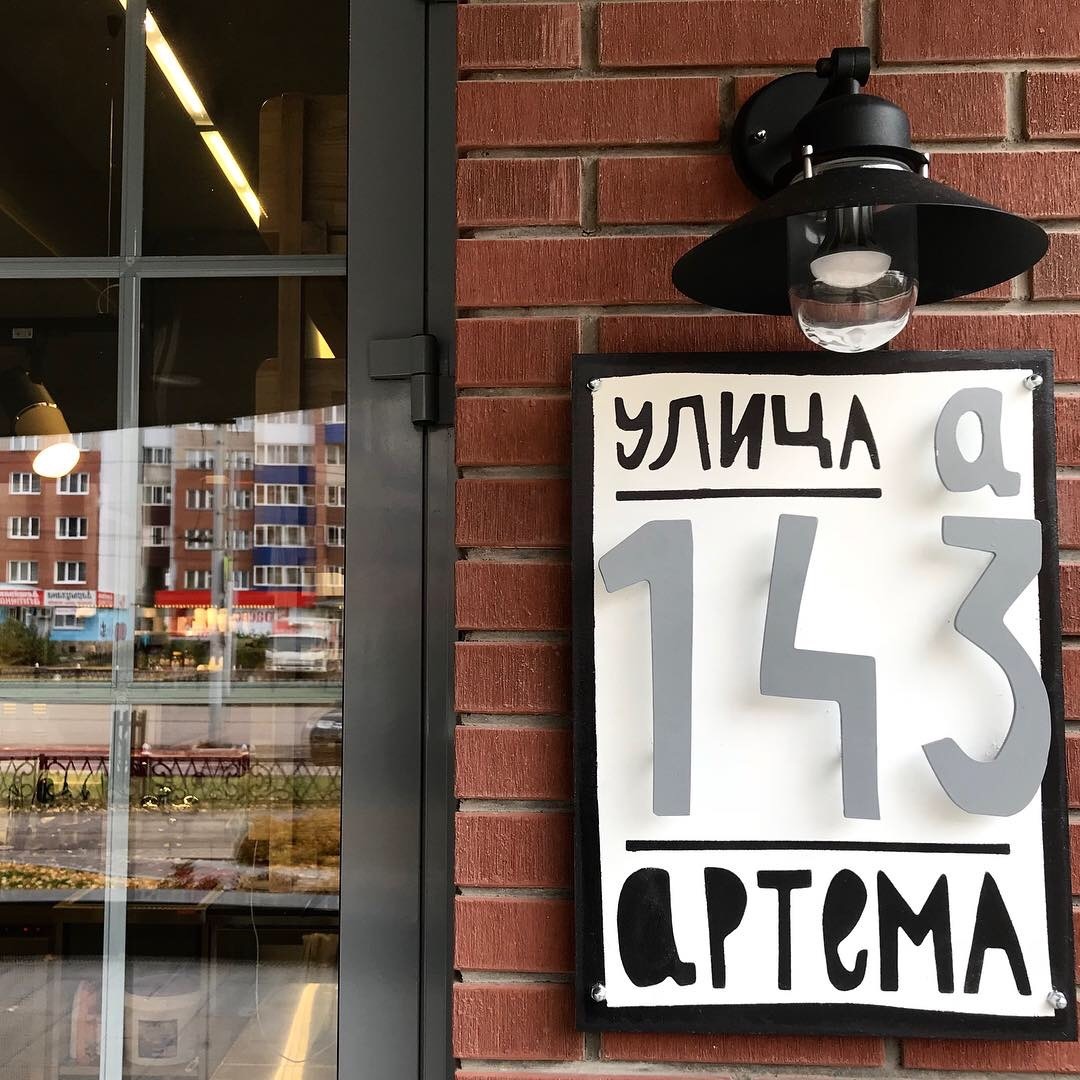 улица а
143
артема